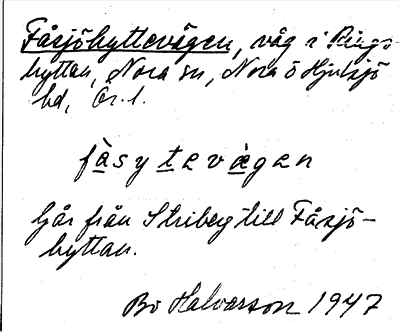 Fåsjöhyttevägen, väg i Pings-
hyttan, Nora sn, Nora o Hjulsjö
bd, Ör. l.
fåsytevägen
Går från Striberg till Fåsjö-
hyttan.
Bo Halvarson 1947